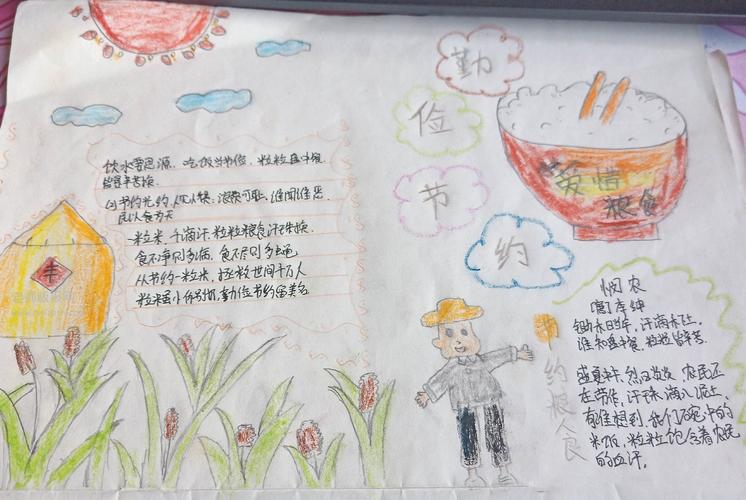 勤
俭
节
约
爱惜
粮食
饮水要思源，吃饭当节俭，粒粒盘中餐，
皆是辛苦换。
民以食为天
一粒米，千滴汗，粒粒粮食汗珠换。
食不净则多病，食不尽则多
从节约一粒米，拯救世间千万人
粒米虽小
勤俭节约是美名
丰
悯农
唐 李绅
锄禾日当午，汗滴禾下土，
谁知盘中餐，粒粒皆辛苦。
约粮食
盛夏 烈日炎炎，农民还
在劳作，汗珠滴入泥土
有谁想到，我们碗中的
米饭，粒粒饱含着农民
的血汗。